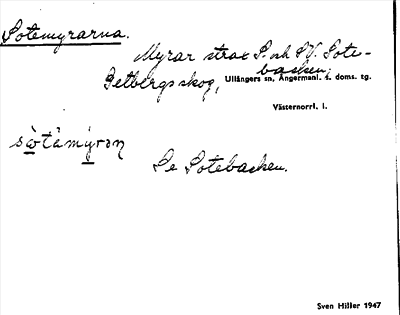 Sotemyrarna.
Myrar strax S. och SV. Sote-
backen,
Getbergsskog, Ullångers sn, Ångermanl. s. doms. tg.
Västernorrl. l.
Se Sotebacken.
Sven Hiller 1947